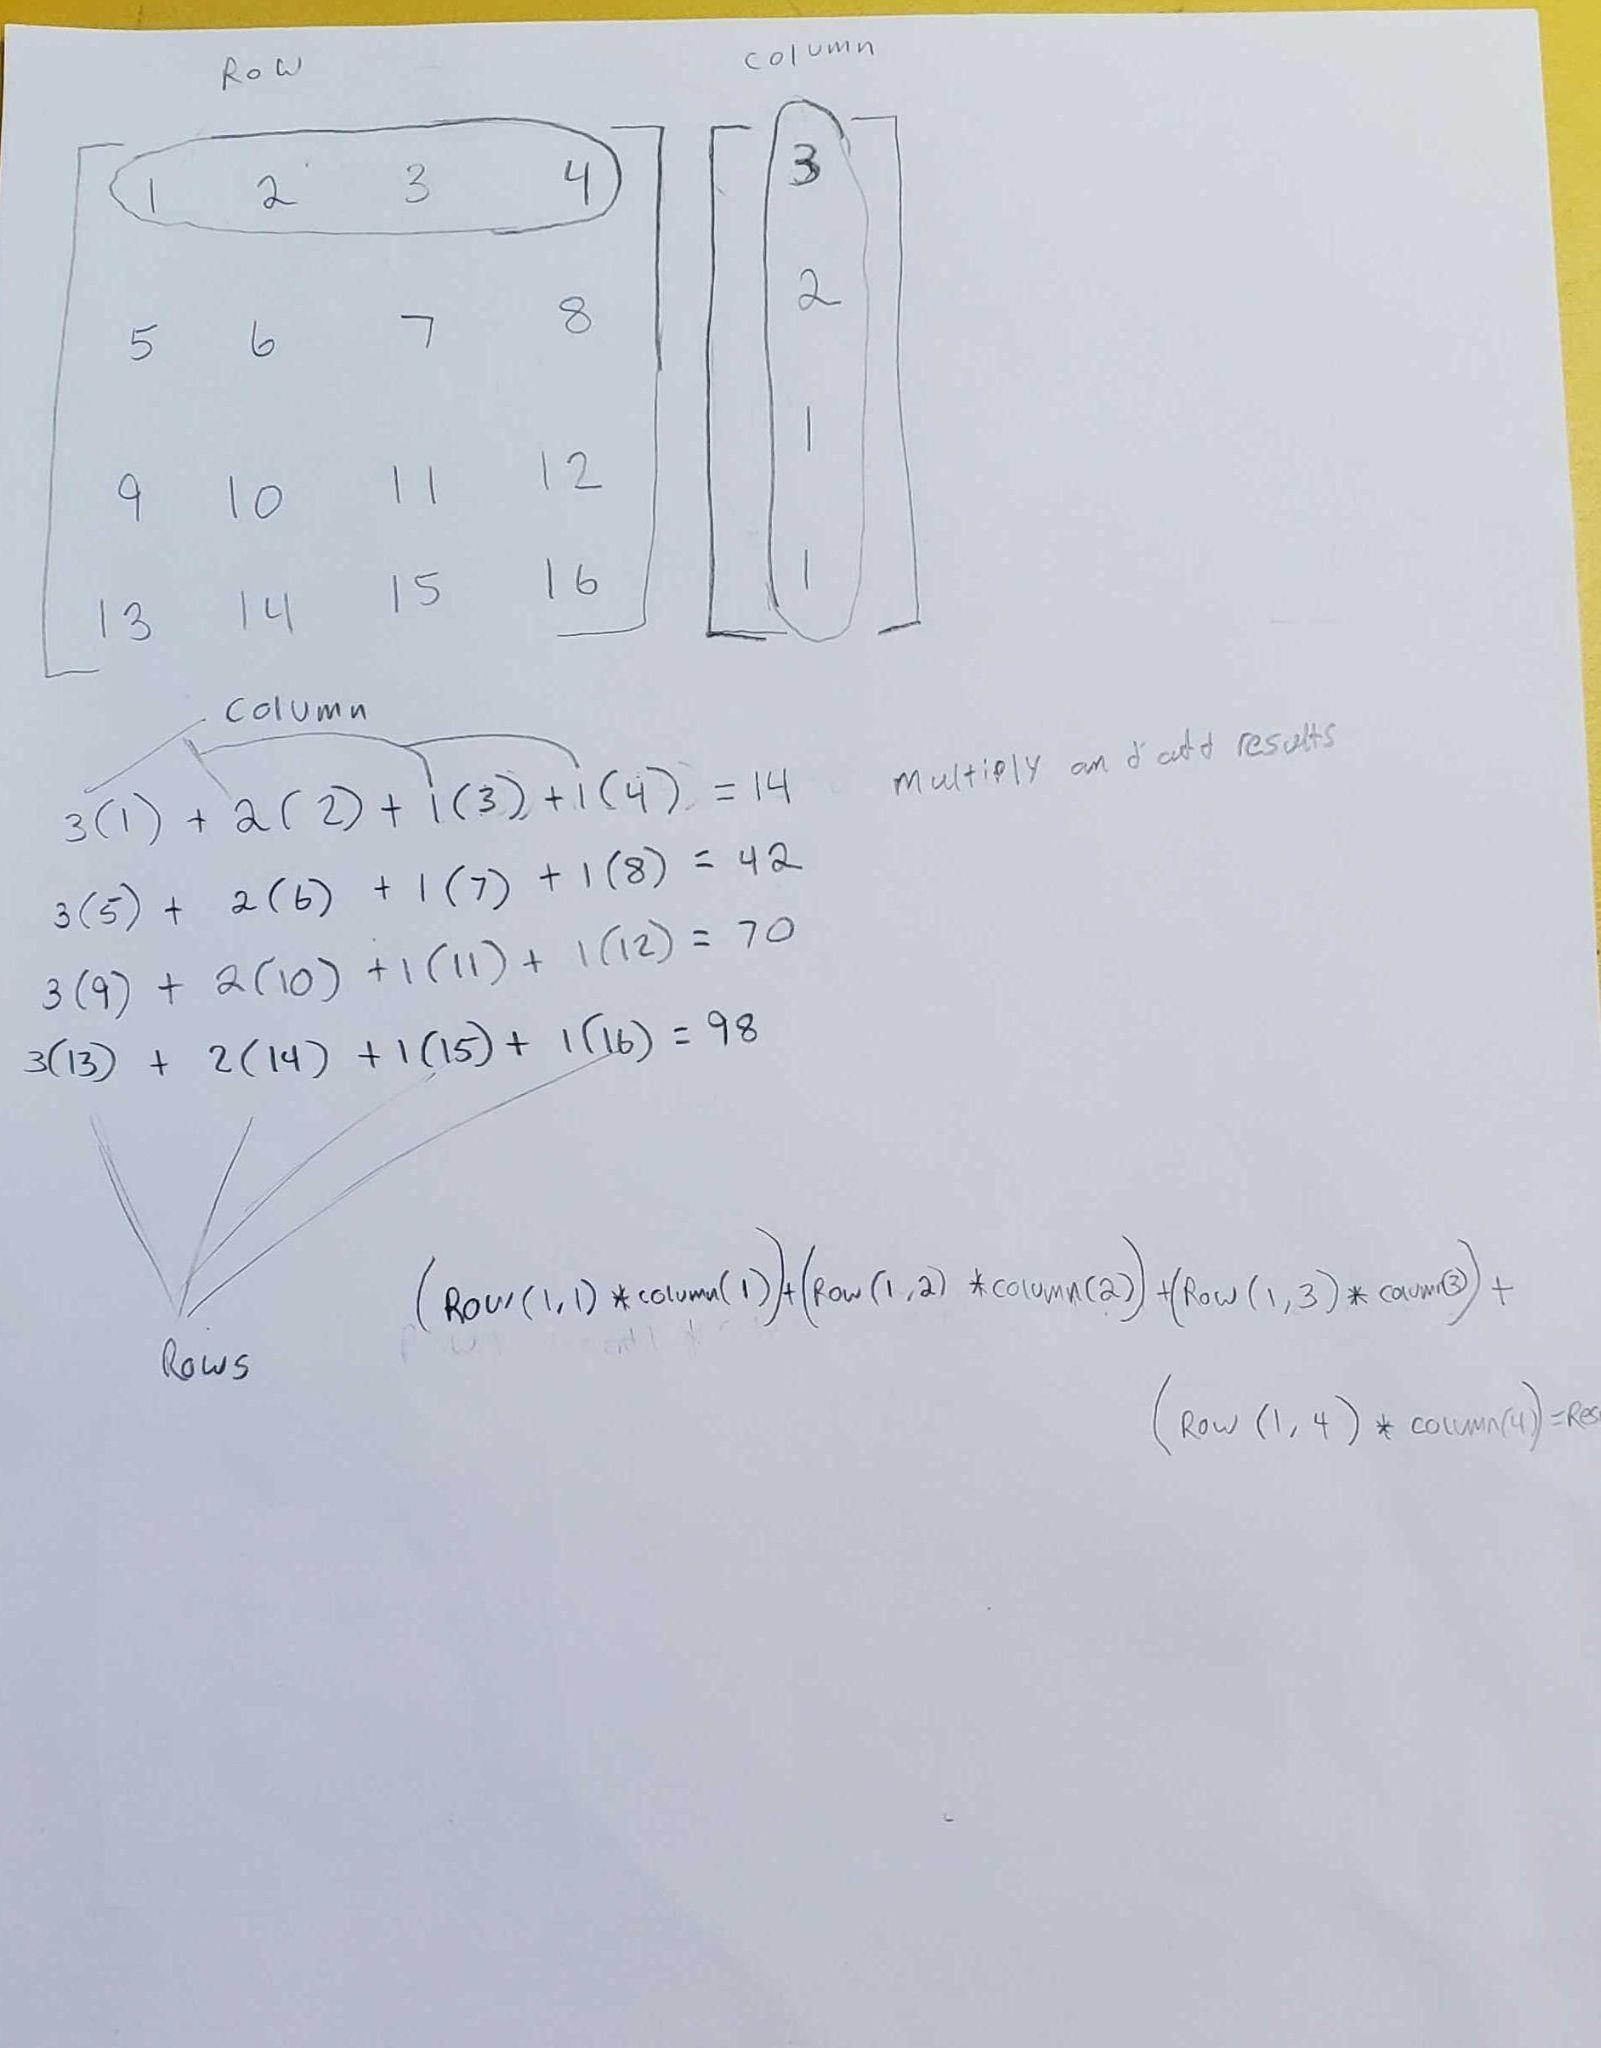 Row column
1 2 3 4 3
5 6 7 8 2
9 10 11 12 1
13 14 15 16 1
column
3(1) + 2(2) + 1(3) + 1(4) = 14 multiply and add results
3(5) + 2(6) + 1(7) + 1(8) = 42
3(9) + 2(10) + 1(11) + 1(12) = 70
3(13) + 2(14) + 1(15) + 1(16) = 98
(Row(1,1) * column(1)) + (Row(1,2) * column(2)) + (Row(1,3) * caumn(3)) +
Rows
(Row (1,4) * column(4)) = Res